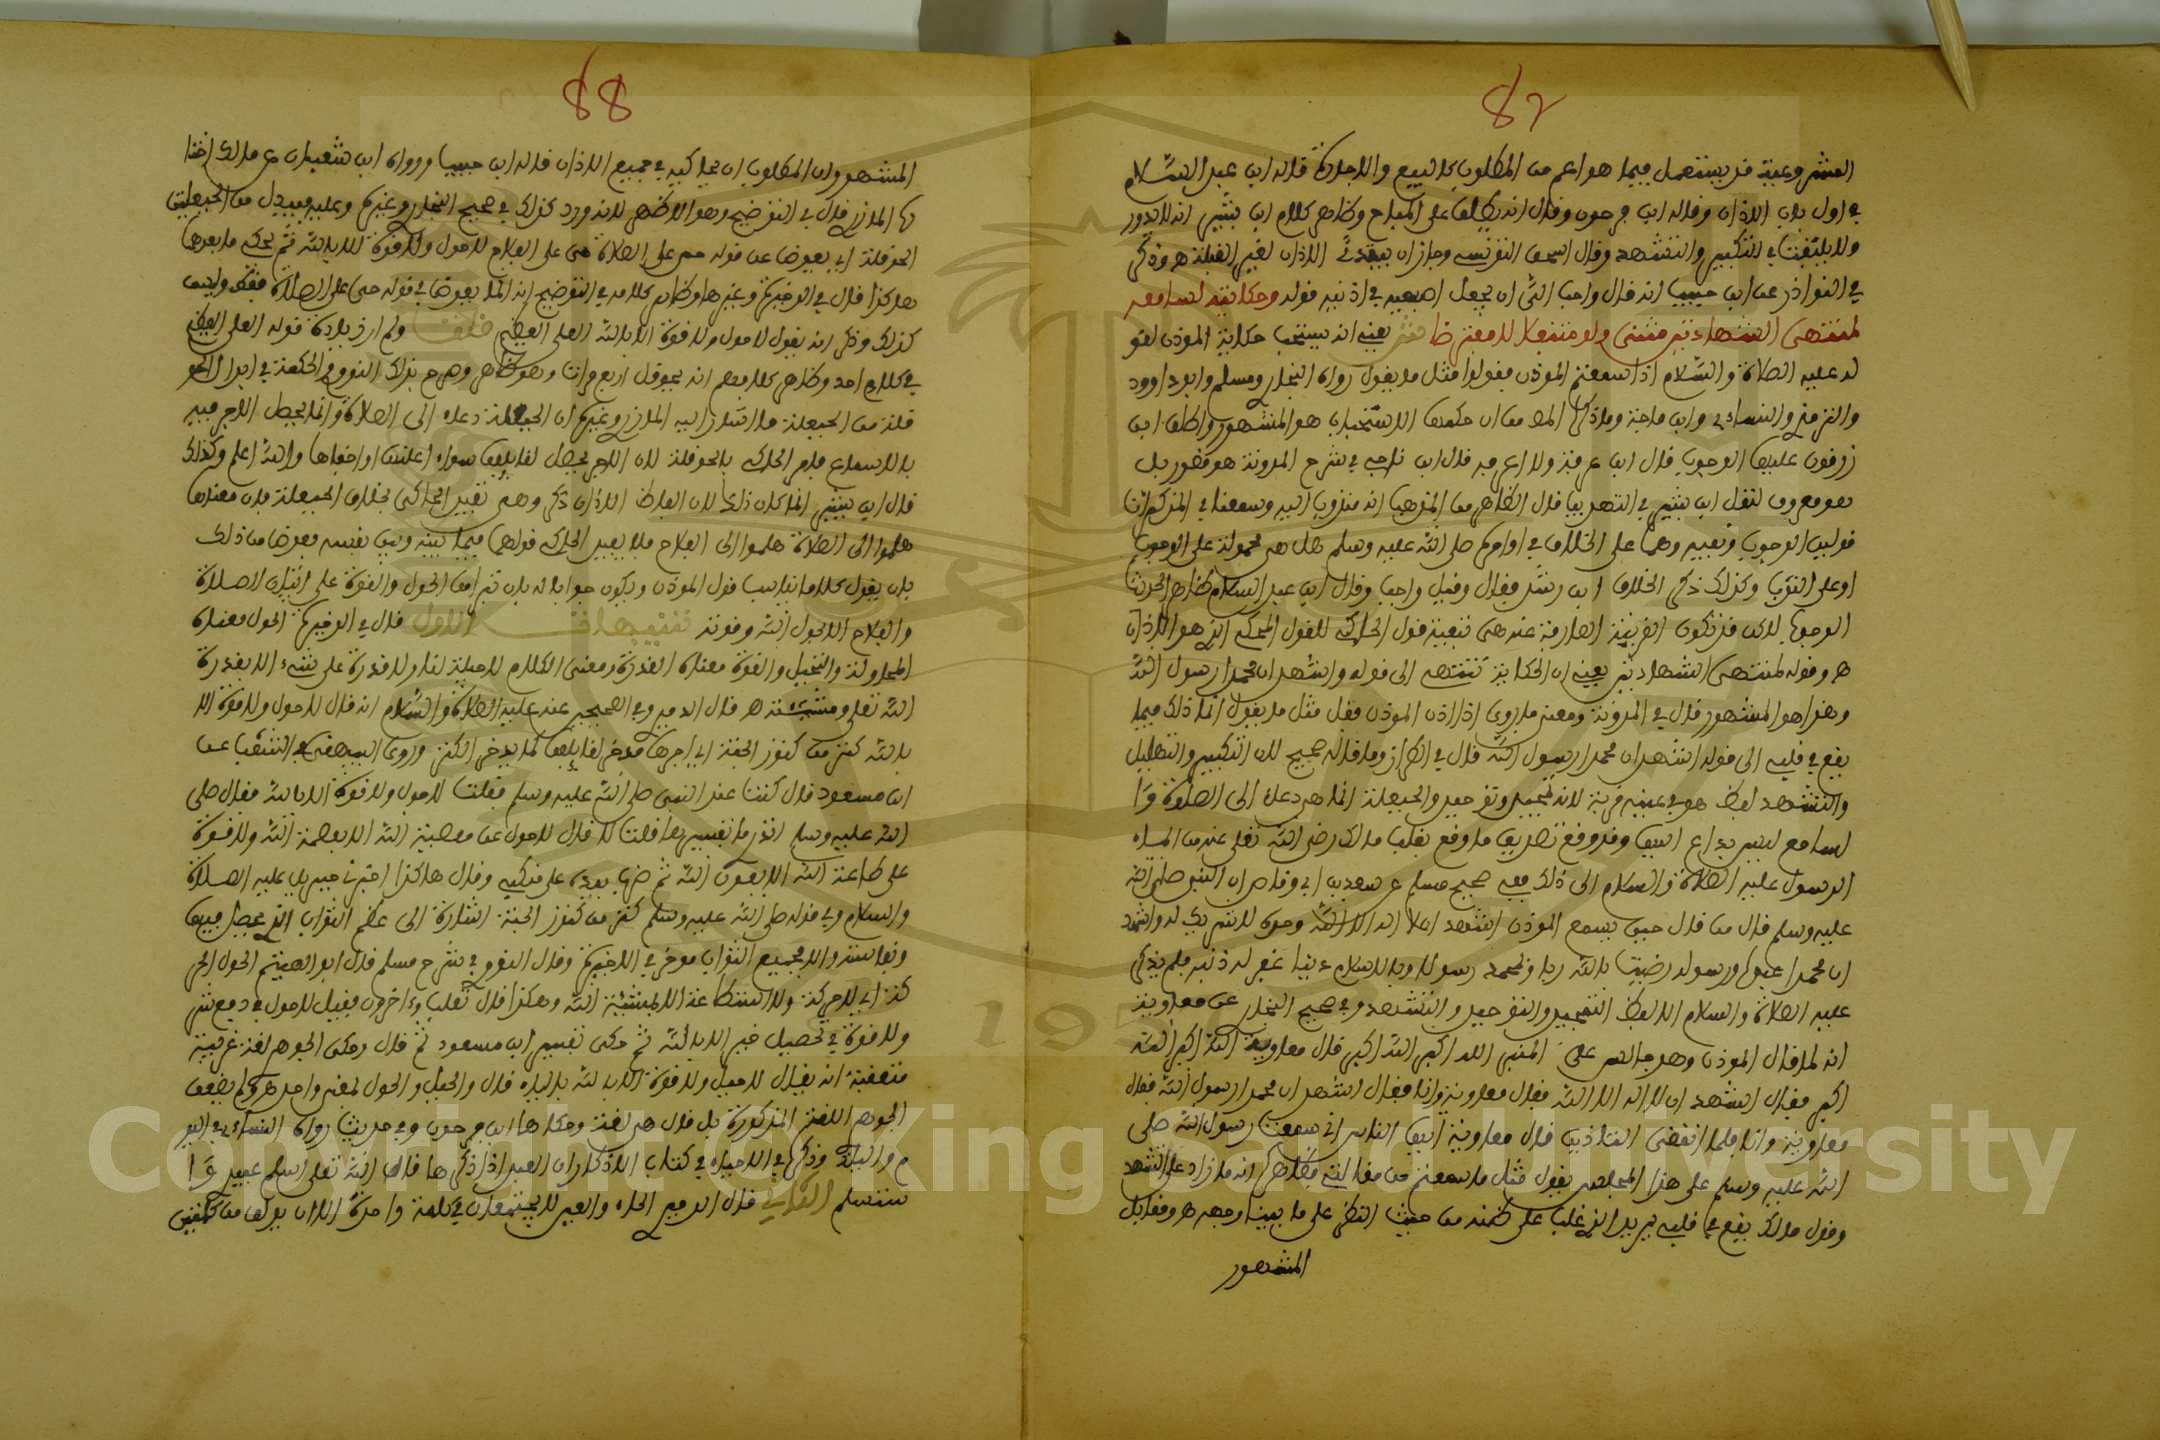 82
المشروعية قد يستعمل فيما هو اعم من المطلوب كالبيع والاجارة قاله ابن عبد السلام
في اول باب الاذان وقاله ابن فرحون وقال انه يطلق على المباح وظاهر كلام ابن بشير انه لا يدور
ولا يلتفت في التكبير والتشهد وقال اسحق التونسي وجاز ان يبتدئ الاذان لغير القبلة ه وذكر
في النوادر عن ابن حبيب انه قال واحب الي ان يجعل اصبعيه في اذنيه قوله وحكايته لسامعه
لمنتهى الشهادتين مثنى ولو متنفلا لا مفترضا يعني انه يستحب حكاية المؤذن لقو
له عليه الصلاة والسلام اذا سمعتم المؤذن فقولوا مثل ما يقول رواه البخاري ومسلم وابو داوود
والترمذي والنساءي وابن ماجة وما ذكره المص من ان حكمها الاستحباب هو المشهور واطلق ابن
زرقون عليها الوجوب قال ابن عرفة ولا اعرفه قال ابن ناجي في شرح المدونة هو قصور بل
هو معروف لنقل ابن بشير في التهذيب قال الظاهر من المذهب انه مندوب اليه وسمعنا في المذكرات
قولين الوجوب ونفيه وهما على الخلاف في اوامره صلى الله عليه وسلم هل هي محمولة على الوجوب
او على الندب وكذلك ذكر الخلاف ابن رشد فقال وقيل واجب وقال ابن عبد السلام ظاهر الحديث
الوجوب لكن قد تكون القرينة الصارفة عنه هي تبعية قول الحاكي للقول المحكي الذي هو الاذان
ه وقوله لمنتهى الشهادتين يعني ان الحكاية تنتهي الى قوله واشهد ان محمدا رسول الله
وهذا هو المشهور قال في المدونة ومعنى ما روي اذا اذن المؤذن فقل مثل ما يقول انما ذلك فيما
يقع في قلبي الى قوله اشهد ان محمدا رسول الله قال في الطراز وما قاله صحيح لان التكبير والتهليل
والتشهد لفظ هو في عينه قربة لانه تمجيد وتوحيد والحيعلة انما هي دعاء الى الصلوة وا
لسامع ليس بداع اليها وقد وقع تصديق ما وقع بقلب مالك رضي الله تعلى عنه من المساء
الرسول عليه الصلاة والسلام الى ذلك ففي صحيح مسلم عن سعد بن ابي وقاص ان النبي صلى الله
عليه وسلم قال من قال حين يسمع المؤذن اشهد ان لا اله الا الله وحده لا شريك له واشهد
ان محمدا عبده ورسوله رضيت بالله ربا وبمحمد رسولا وبالاسلام دينا غفر له ذنبه فلم يذكر
عليه الصلاة والسلام الا لفظ التمجيد والتوحيد والتشهد وفي صحيح البخاري عن معاوية
انه لما قال المؤذن وهو جالس على المنبر الله اكبر الله اكبر قال معاوية الله اكبر الله
اكبر فقال اشهد ان لا اله الا الله فقال معاوية وانا فقال اشهد ان محمدا رسول الله فقال
معاوية وانا فلما انقضى التاذين قال معاوية ايها الناس اني سمعت رسول الله صلى
الله عليه وسلم على هذا المجلس يقول مثل ما سمعتم من مقالتي فظاهره انه ما زاد على التشهد
وقول مالك يقع في قلبي يريد الذي غلب على ظنه من حيث النظر على ما بينا وجهه ه ومقابل
المشهور
88
المشهور ان المطلوب ان يحاكيه في جميع الاذان قاله ابن حبيب ورواه ابن شعبان عن مالك اختا
ره المازري قال في التوضيح وهو الاظهر لانه ورد كذلك في صحيح البخاري وغيره وعليه فيبدل من الحيعلتين
الحوقلة اي يعوض عن قوله حي على الصلاة حي على الفلاح لا حول ولا قوة الا بالله ثم يحكي ما بعدها
هكذا قال في الذخيرة وغيرها وظاهر كلامه في التوضيح انه انما يعوض في قوله حي على الصلاة فقط وليس
كذلك وذكر انه يقول لا حول ولا قوة الا بالله العلي العظيم ولم ار زيادة قوله العلي العظيم
في كلام احد وظاهر كلامهم انه يحوقل اربع مرات وهو ظاهر وصرح بذلك النووي والحكمة في ابدال الحو
قلة من الحيعلة ما اشار اليه المازري وغيره ان الحيعلة دعاء الى الصلاة وانما يحصل الاجر فيه
بالاسماع فامر الحاكي بالحوقلة لان الاجر يحصل لقايلها سواء اعلنها او اخفاها والله اعلم وكذلك
قال ابن بشير انما كان ذلك لان الفاظ الاذان ذكر وهي تفيد الحاكي بخلاف الحيعلة فان معناها
هلموا الى الصلاة هلموا الى الفلاح فلا يفيد الحاكي قولهما فيما بينه وبين نفسه فعوض من ذلك
بان يقول كلاما يناسب قول المؤذن ويكون جوابا له بان تبرا من الحول والقوة على اتيان الصلاة
والفلاح الا بحول الله وقوته تنبيهات الاول قال في الذخيرة الحول معناه
المحاولة والتحيل والقوة معناه القدرة ومعنى الكلام لا حيلة لنا ولا قدرة على شيء الا بقدرة
الله تعلى ومشيئته ه قال الدميري وفي الصحيحين عنه عليه الصلاة والسلام انه قال لا حول ولا قوة الا
بالله كنز من كنوز الجنة اي اجرها مدخر لقايلها كما يدخر الكنز وروى البيهقي في الشعب عن
ابن مسعود قال كنت عند النبي صلى الله عليه وسلم فقلت لا حول ولا قوة الا بالله فقال صلى
الله عليه وسلم اتدري ما تفسيرها قلت لا قال لا حول عن معصية الله الا بعصمة الله ولا قوة
على طاعة الله الا بعون الله ثم ضرب بيده على منكبي وقال هاكذا اخبرني جبريل عليه الصلاة
والسلام وفي قوله صلى الله عليه وسلم كنز من كنوز الجنة اشارة الى عظم الثواب الذي يحصل فيها
ونفاسته والا فجميع الثواب مدخر في الاخرة وقال النووي في شرح مسلم قال ابو الهيثم الحول الحر
كة اي لا حركة ولا استطاعة الا بمشيئة الله وهكذا قال ثعلب واخرون وقيل لا حول في دفع شر
ولا قوة في تحصيل خير الا بالله ثم حكى تفسير ابن مسعود ثم قال وحكى الجوهري لغة غريبة
ضعيفة انه يقال لا حيل ولا قوة الا بالله بالياء قال والحيل والحول لمعنى واحد ه ولم يضعف
الجوهري اللغة المذكورة بل قال هي لغة وحكاها ابن فرحون وفي حديث رواه النساءي في اليو
م والليلة وذكره في الاحياء في كتاب الاذكار ان العبد اذا ذكرها قال الله تعلى اسلم عبدي وا
ستسلم الثاني قال الدميري الحاء والعين لا يجتمعان في كلمة واحدة الا ان يؤلف من كلمتين